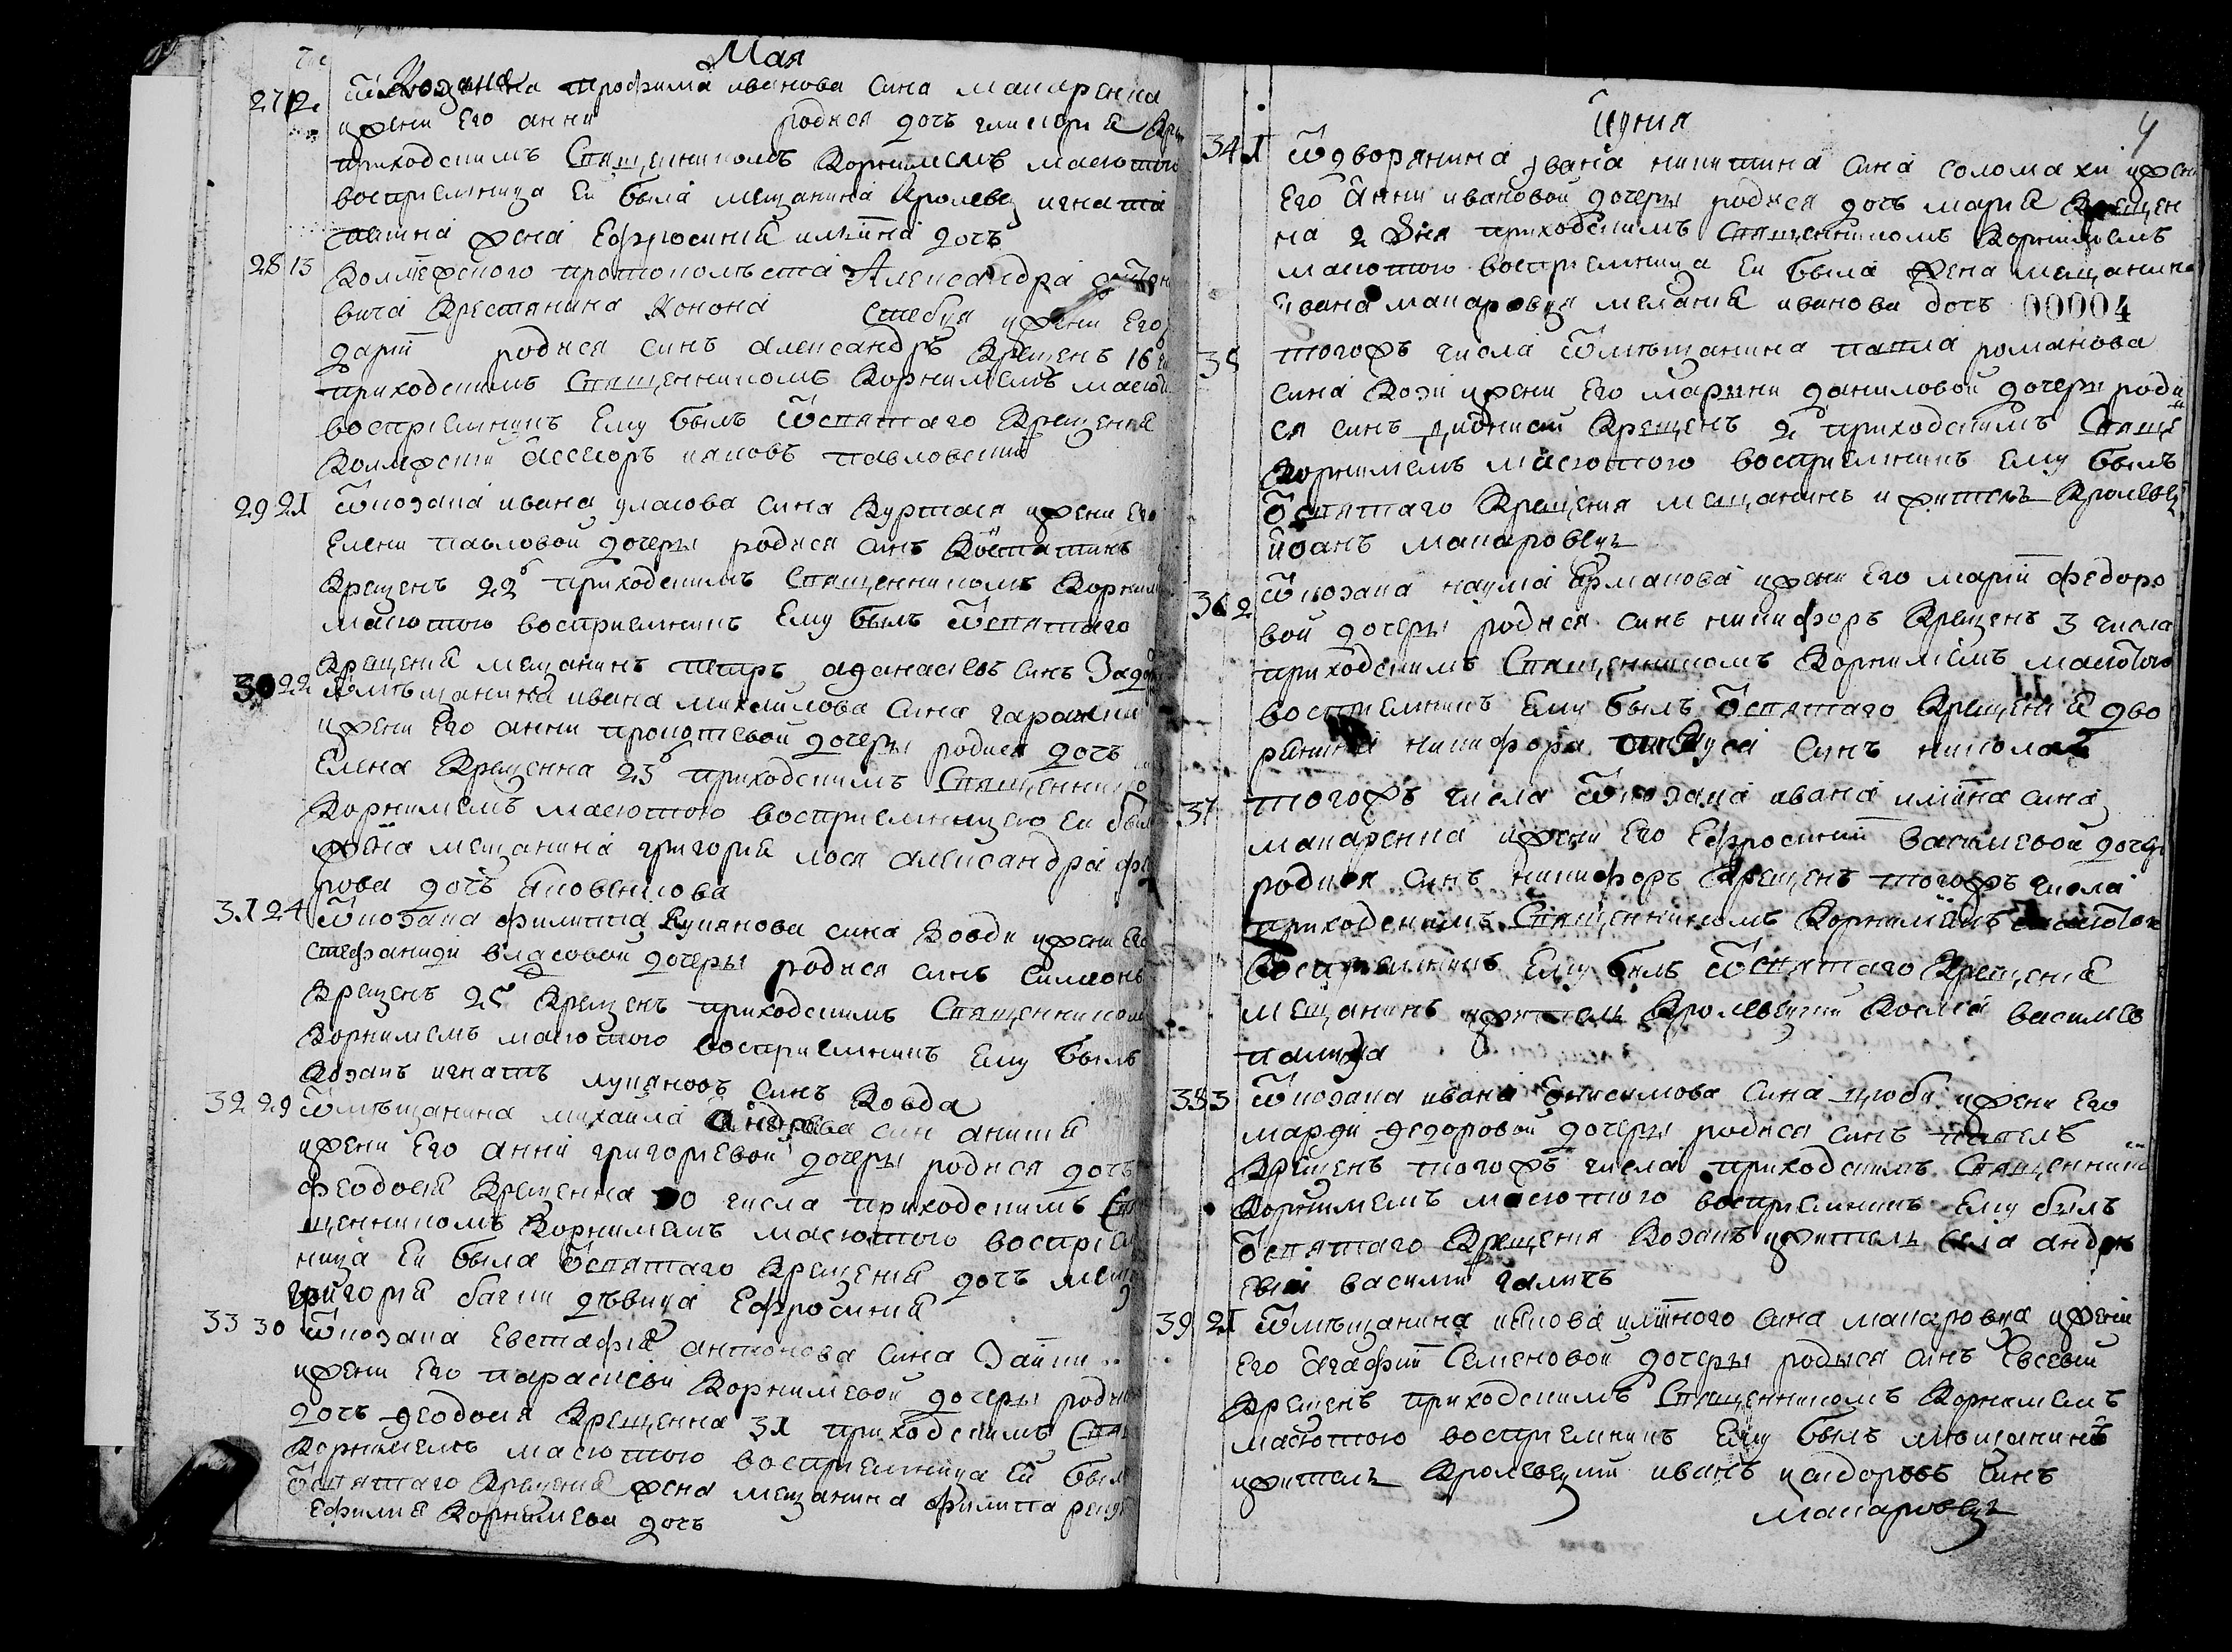 Мая
27 12 Ѿ Козака трофима иванова сина макаренка
ижени Его анни родися дочъ гликория
приходскимъ Священникомъ Корнилиемъ масютою
восприемница Ей была мещанина Кролевец игната
жена Ефросиния илїина дочъ
28 13 Коллежского протоколѣста Александра
вича Крестянина Конона Стебуя ижени Его
дарїи родися синъ александръ Крещенъ 16
приходскимъ Священникомъ Корнилиемъ масютою
восприемникъ Ему былъ Ѿ святаго Крещения
Коллежский асессоръ яковъ павловский
29 21 Ѿ козака ивана уласова сина Курткася ижени Его
Елени павловой дочеры родися синъ Костатинъ
Крещенъ 22 приходскимъ Священникомъ Корнилием
масютою восприемникъ Ему былъ Ѿ святаго
Крещения мещанинъ петръ афанасиевъ синъ
30 22 Ѿ мѣщанина ивана михайлова сина
ижени Его анни прокопиевой дочеры родися дочъ
Елена Крещенна 23 приходскимъ Священнико
Корнилиемъ масютою восприемницею Ей была
жена мещанина григория лося александра
рова дочъ Яковенкова
31 24 Ѿ козака филиппа Лукянова сина Ковди ижени Его
стефаниди власовой дочеры родися синъ симеонъ
Крещенъ 25 Крещенъ приходскимъ Священником
Корнилиемъ масютого восприемникъ Ему былъ
Козакъ игнатъ лукяновъ синъ Ковда
32 29 Ѿ мѣщанина михаила андреева син
ижени Его анни григориевой дочеры родися дочъ
феодосия Крещенна 30 числа приходскимъ Свя
щенникомъ Корнилиемъ масютого восприем
ница Ей была Ѿ святаго Крещения дочъ мещ
григория дѣвица Ефросиния
33 30 Ѿ козака Евстафия антонова сина
ижени Его параскеви Корнилиевой дочеры родися
дочъ феодосия Крещенна 31 приходскимъ Свя
Корнилиемъ масютою восприемница Ей была
Ѿ святаго Крещения жена мещанина филиппа
Ефимия Корнилиева дочъ
Іуния
4
34 1 Ѿ дворянина Ивана никитина сина соломахи ижени
Его Анни ивановой дочеры родися дочъ мария Крещен
на 2 дня приходскимъ Священникомъ Корнилиемъ
масютою восприемница Ей была жена мещанина
ивана макаровця мелания иванова дочъ 00004
35 тогожъ числа Ѿ мѣщанина павла романова
сина Кози ижени Его марини даниловой дочеры роди
ся синъ дионисий Крещенъ 2 приходскимъ Свяще
Корнилиемъ масютого восприемникъ Ему былъ
Ѿ святаго Крещения мещанинъ ижитель Кролевец
иоанъ макаровецъ
36 2 Ѿ козака наума Ермакова ижени Его марїи федоро
вой дочеры родися синъ никифоръ Крещенъ 3 числа
приходскимъ Священникомъ Корнилиемъ масютою
восприемникъ Ему былъ Ѿ святаго Крещения дво
рянина никифора синъ николай
37 тогожъ числа Ѿ козака ивана илїина сина
макаренка ижени Его Ефросинїи василиевой дочери
родися синъ никифоръ Крещенъ тогожъ числа
приходскимъ Священникомъ Корнилиемъ масютою
Восприемникъ Ему былъ Ѿ святаго Крещения
мещанинъ ижитель Кролевецкий Косма василев
палида
38 3 Ѿ козака ивана Онисимова сина цюби ижени Его
марфи федоровой дочеры родися синъ павелъ
Крещенъ тогожъ числа приходскимъ Священник
Корнилиемъ масютого восприемникъ Ему былъ
Ѿ святаго Крещения Козакъ ижитель села андре
евки василий галичъ
39 21 Ѿ мѣщанина якова илїиного сина макаровца ижени
Его Агафїи Семеновой дочеры родыся синъ Евсевий
Крещенъ приходскимъ Священникомъ Корнилиемъ
масютою восприемникъ Ему былъ мѣщанинъ
ижитель Кролевецкий иванъ исидоровъ синъ
макаровецъ